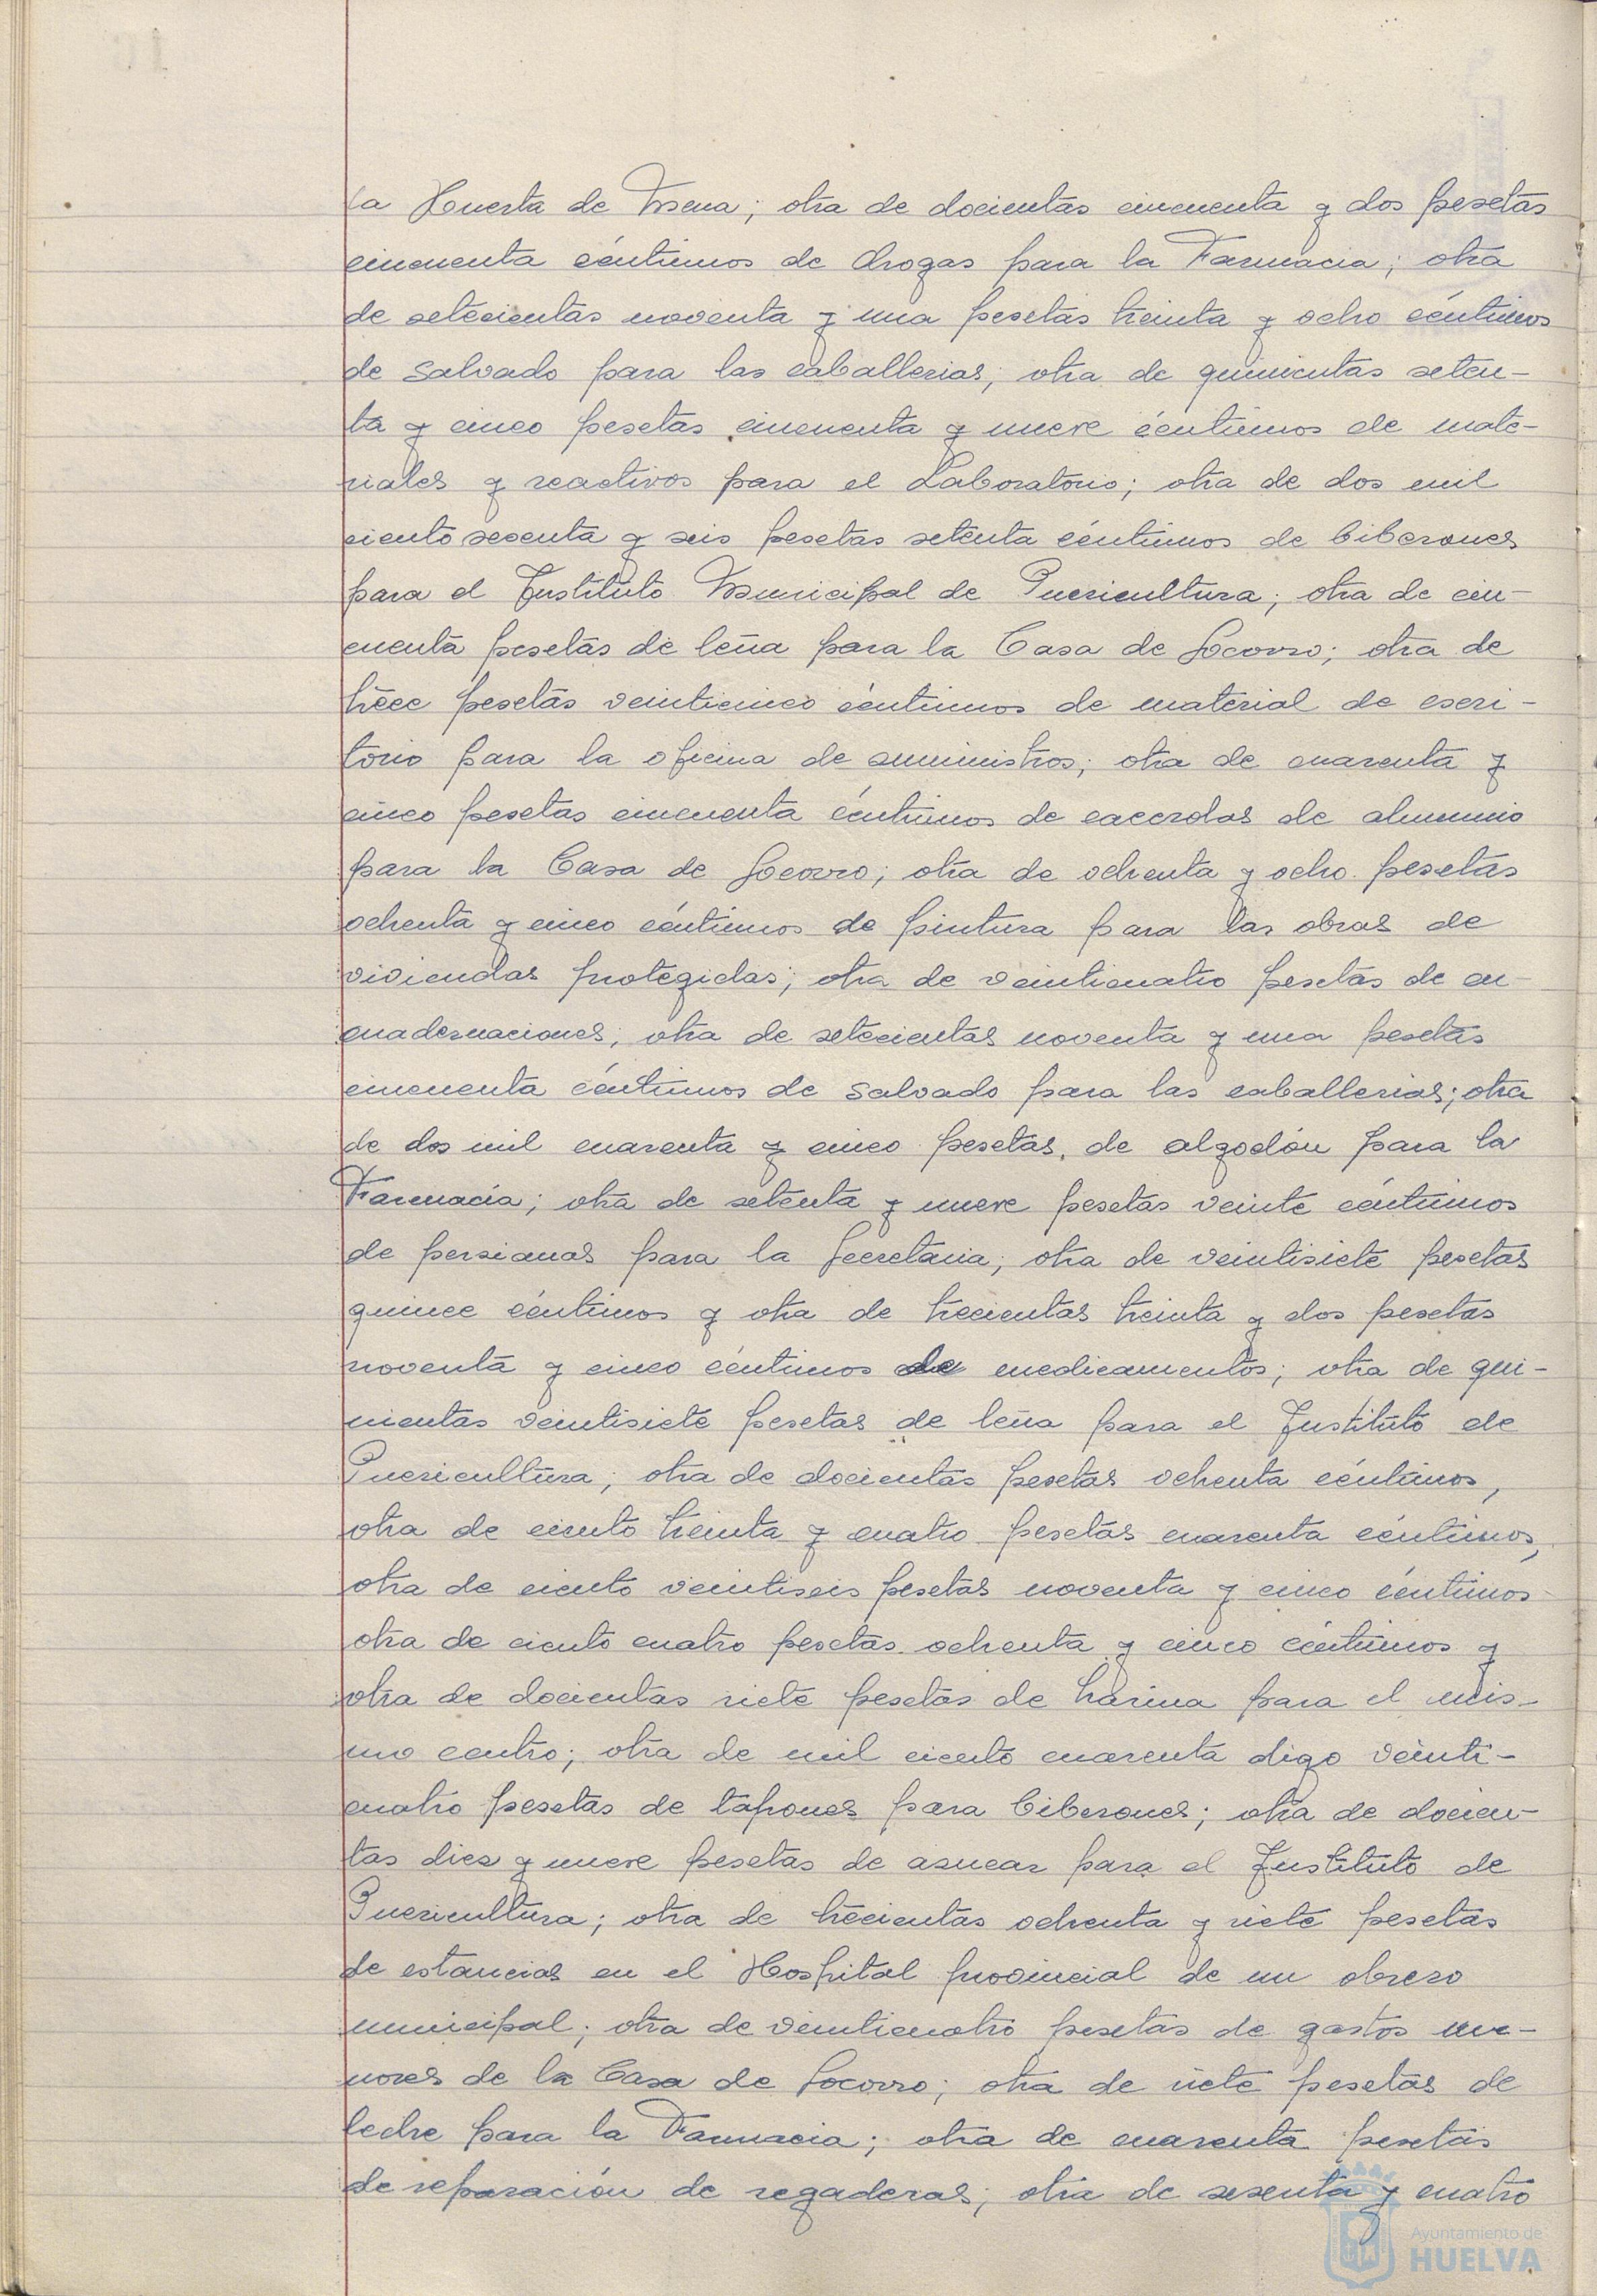 la Huerta de Mena; otra de docientas cincuenta y dos pesetas
cincuenta céntimos de drogas para la Farmacia; otra
de setecientas noventa y una pesetas treinta y ocho céntimos
de salvado para las caballerias; otra de quinientas seten-
ta y cinco pesetas cincuenta y nueve céntimos de mate-
riales y reactivos para el Laboratorio; otra de dos mil
ciento sesenta y seis pesetas setenta céntimos de biberones
para el Instituto Municipal de Puericultura; otra de cin-
cuenta pesetas de leña para la Casa de Socorro; otra de
trece pesetas veinticinco céntimos de material de escri-
torio para la oficina de suministros; otra de cuarenta y
cinco pesetas cincuenta céntimos de cacerolas de aluminio
para la Casa de Socorro; otra de ochenta y ocho pesetas
ochenta y cinco céntimos de pintura para las obras de
viviendas protegidas; otra de veinticuatro pesetas de en-
cuadernaciones; otra de setecientas noventa y una pesetas
cincuenta céntimos de salvado para las caballerias; otra
de dos mil cuarenta y cinco pesetas, de algodón para la
Farmacia; otra de setenta y nueve pesetas veinte céntimos
de persianas para la Secretaria; otra de veintisiete pesetas
quince céntimos y otra de trecientas treinta y dos pesetas
noventa y cinco céntimos de medicamentos; otra de qui-
nientas veintisiete pesetas de leña para el Instituto de
Puericultura; otra de docientas pesetas ochenta céntimos,
otra de ciento treinta y cuatro pesetas cuarenta céntimos,
otra de ciento veintiseis pesetas noventa y cinco céntimos
otra de ciento cuatro pesetas ochenta y cinco céntimos y
otra de docientas siete pesetas de harina para el mis-
mo centro; otra de mil ciento cuarenta digo veinti-
cuatro pesetas de tapones para biberones; otra de docien-
tas diez y nueve pesetas de asucar para el Instituto de
Puericultura; otra de trecientas ochenta y siete pesetas
de estancias en el Hospital provincial de un obrero
municipal; otra de veinticuatro pesetas de gastos me-
nores de la Casa de Socorro; otra de siete pesetas de
leche para la Farmacia; otra de cuarenta pesetas
de reparación de regaderas; otra de sesenta y cuatro
Ayuntamiento de
HUELVA